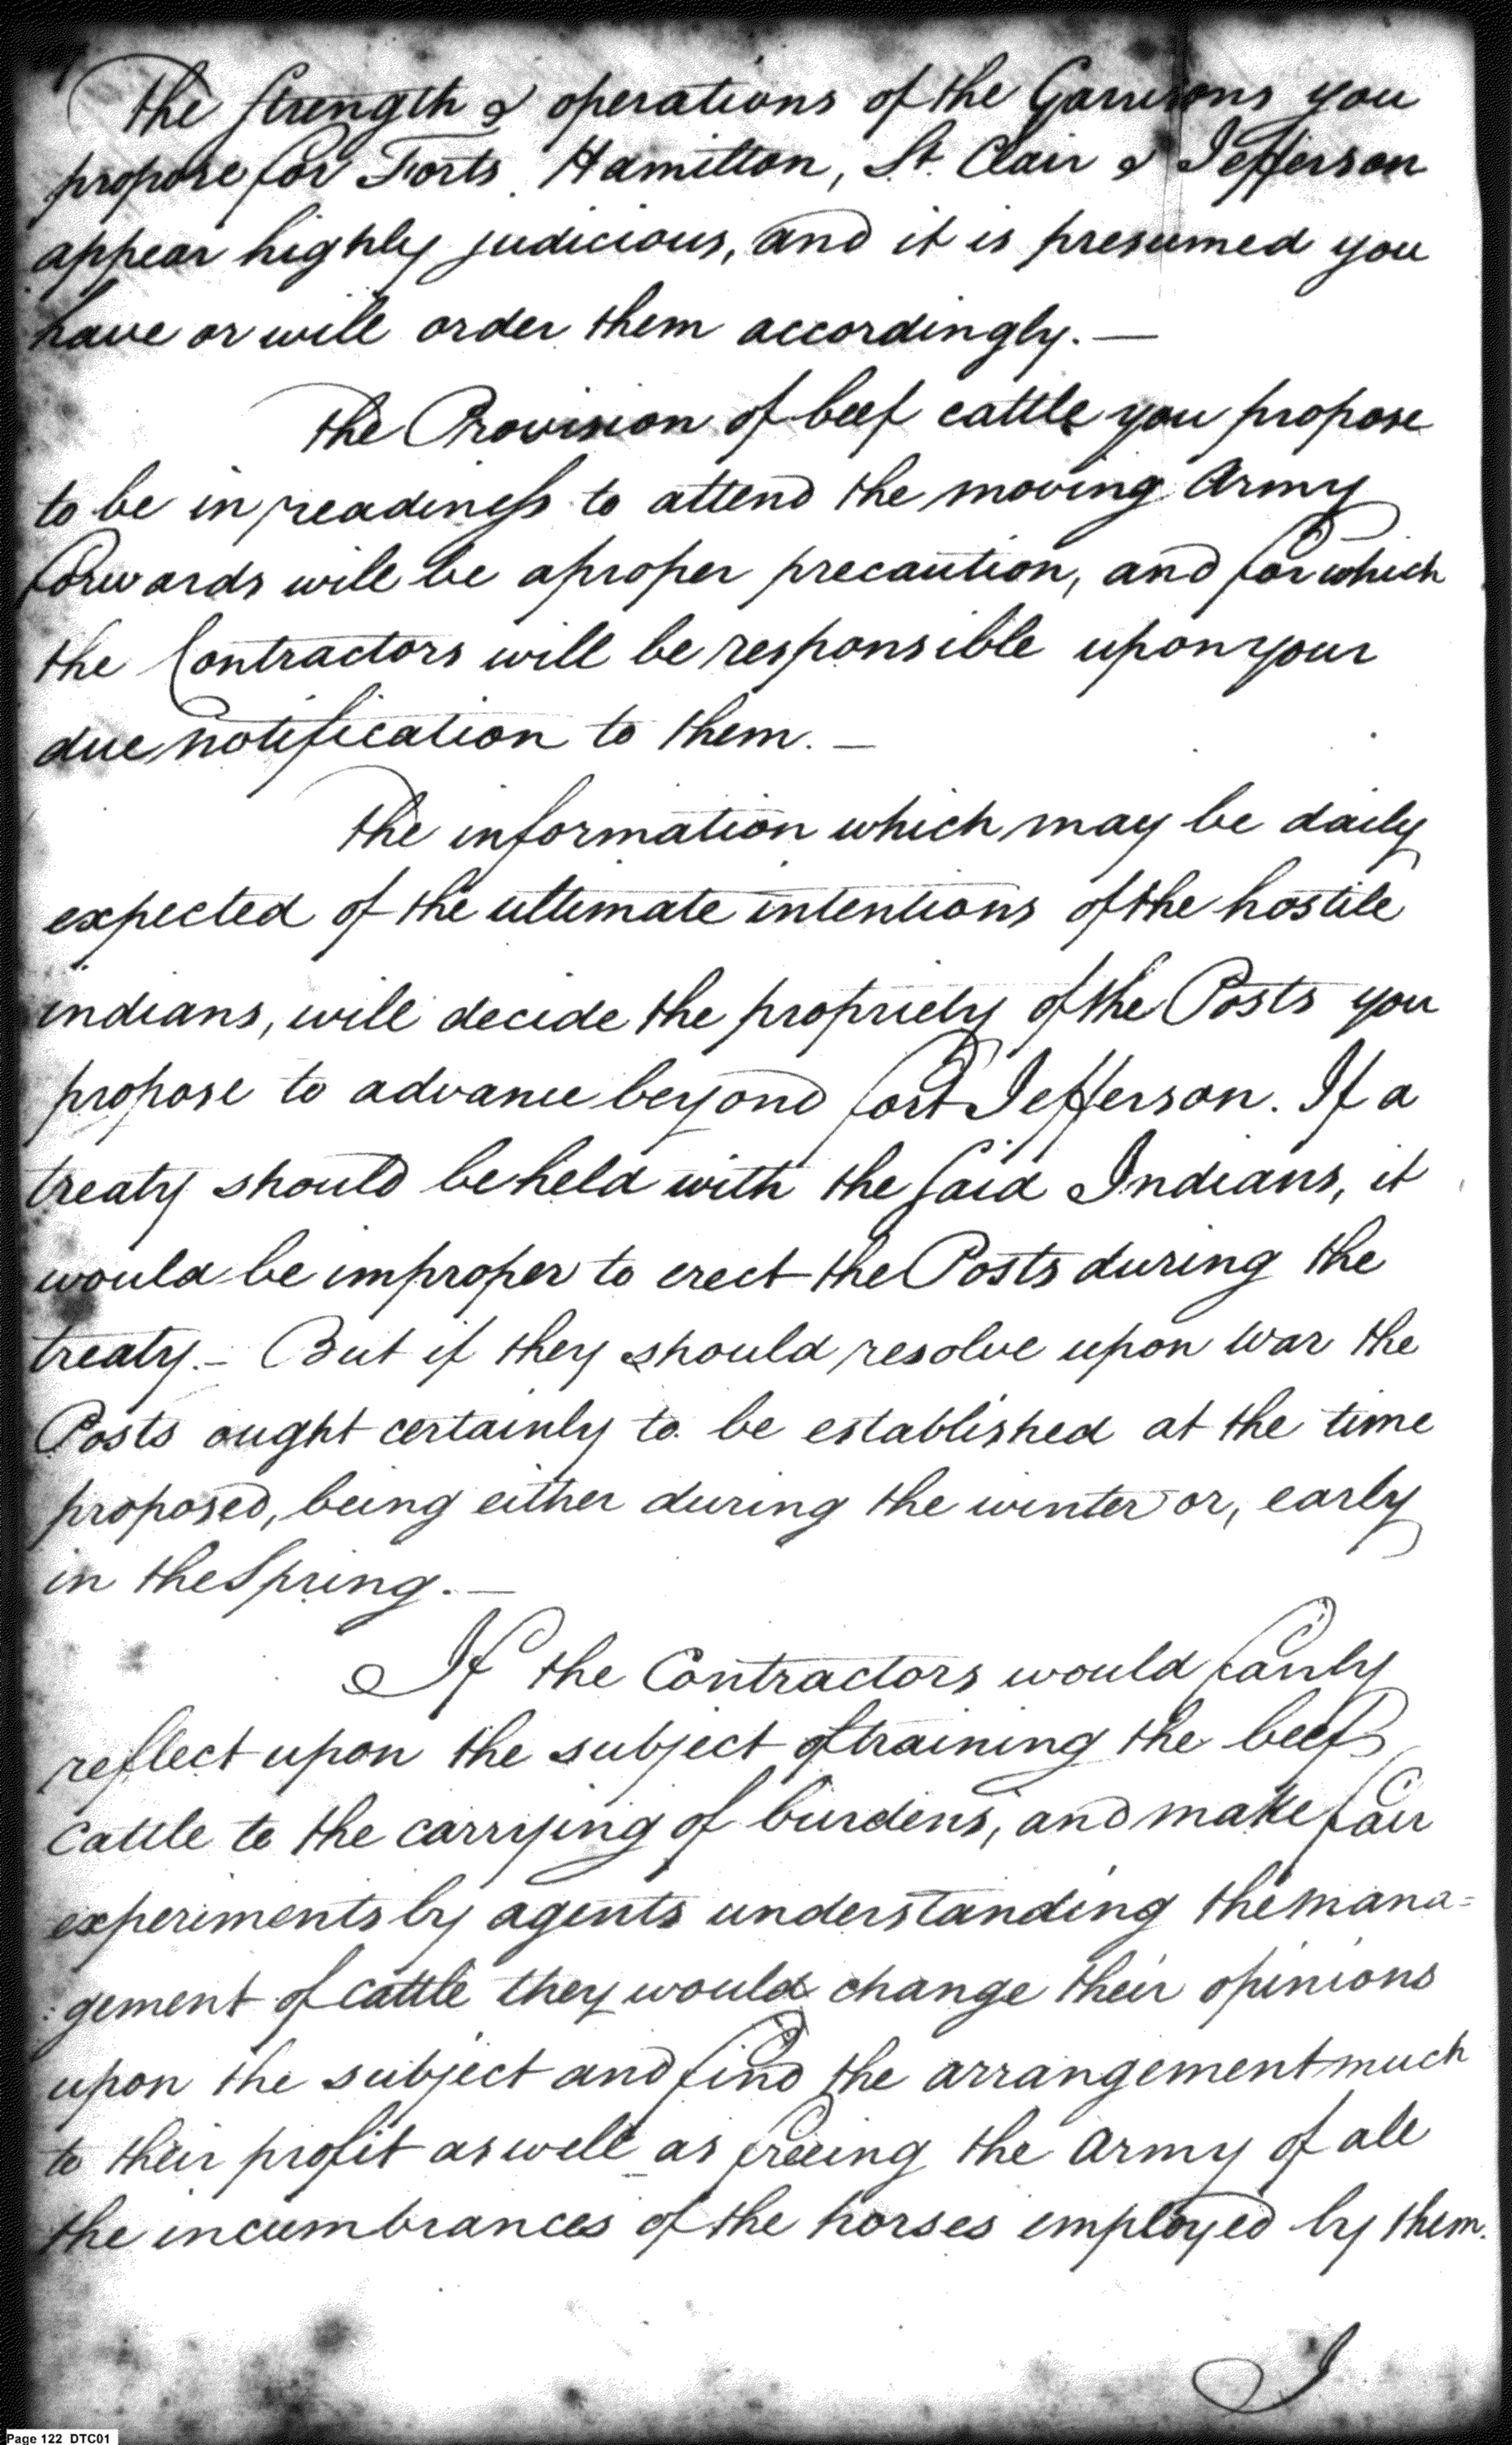 The Strength & operations of the Garrisons you
propose for Forts Hamilton, St. Clair & Jefferson
appear highly judicious, and it is presumed you
have or will order them accordingly. —
The Provision of beef cattle you propose
to be in readiness to attend the moving Army
forwards will be a proper precaution, and for which
the Contractors will be responsible upon your
due notification to them. —
The information which may be daily
expected of the ultimate intentions of the hostile
indians, will decide the propriety of the Posts you
propose to advance beyond fort Jefferson. If a
treaty should be held with the said Indians, it
would be improper to erect the Posts during the
treaty. — But if they should resolve upon war the
Posts ought certainly to be established at the time
proposed, being either during the winter or, early
in the Spring. —
If the Contractors would fairly
reflect upon the subject of training the beef
cattle to the carrying of burdens, and make fair
experiments by agents understanding the mana=
:gement of cattle they would change their opinions
upon the subject and find the arrangement much
to their profit as well as freeing the Army of all
the incumbrances of the horses employed by them.
I
Page 122 DTC01